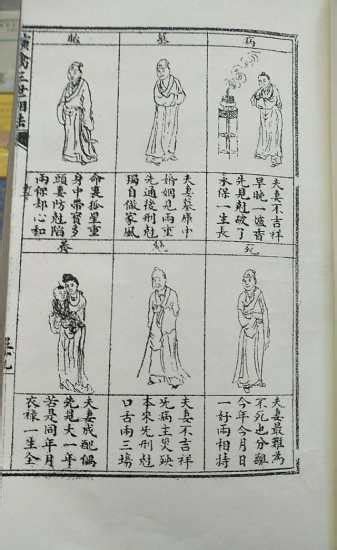 病
夫妻不吉祥
早晚一爐香
先見尅破了
永保一生長
墓
夫妻墓庫中
婚姻見兩重
先通後刑尅
獨自做家風
胎
命裏拾星重
身中帶寶
頭妻防尅陷
兩保却心和
死
夫妻最難為
不死也分離
今年今月日
一好兩相持
絕
夫妻不吉祥
死病主災殃
本來先刑尅
口舌兩三場
養
夫妻成配偶
先見大一年
若是同年月
衣祿一生全
演禽三世相法